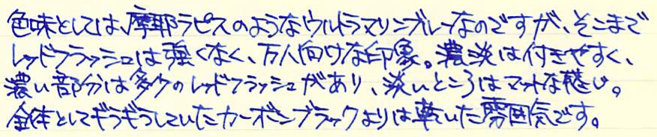 色味としては、摩耶ラピスのようなウルトラマリンブルーなのですが、そこまで
レッドフラッシュは強くなく、万人向けな印象。濃淡は付きやすく、
濃い部分は多少のレッドフラッシュがあり、淡いところはマットな感じ。
全体としてギラギラしていたカーボンブラックよりは乾いた雰囲気です。